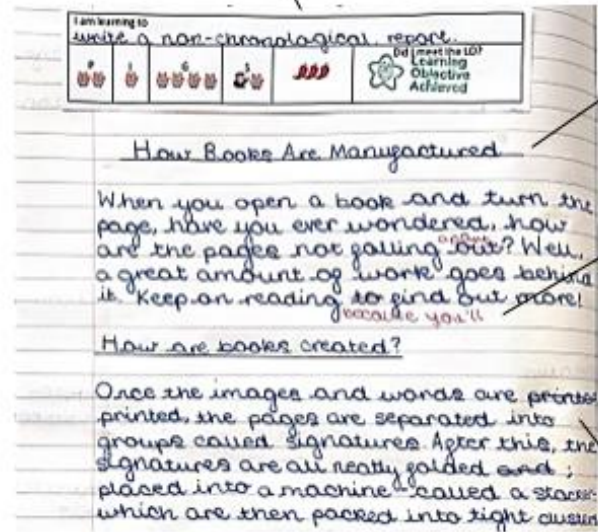 I am learning to
write a non-chronological report.
P
I
G
S
Did I meet the LO?
Learning
Objective
Achieved
How Books Are Manufactured
When you open a book and turn the
page, have you ever wondered, how
are the pages not falling out? Well,
a great amount of work goes behind
it. Keep on reading to find out more!
because you'll
How are books created?
Once the images and words are
printed, the pages are separated into
groups called signatures. After this, the
signatures are all neatly folded and ;
placed into a machine - called a
which are then packed into tight